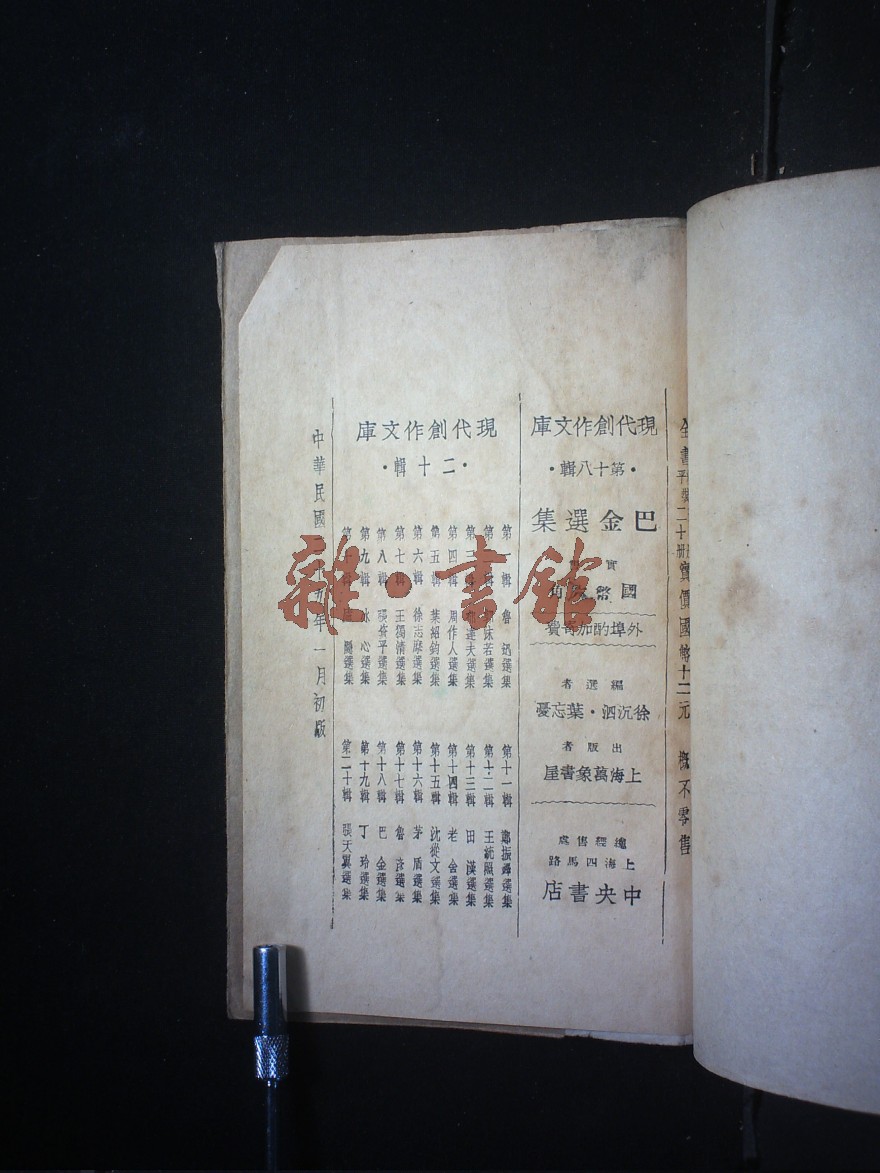 全書平裝二十册實價國幣十二元 概不零售
現代創作文庫
·第十八輯·
巴金選集
實
國幣 角
外埠酌加寄費
編選者
徐沉泗·葉忘憂
出版者
上海萬象書屋
總經售處
上海四馬路
中央書店
現代創作文庫
·二十輯·
第一輯 魯迅選集
第 沫若選集
第三 達夫選集
第四輯 周作人選集
第五輯 葉紹鈞選集
第六輯 徐志摩選集
第七輯 王獨清選集
第八輯 張資平選集
第九輯 冰心選集
第 輯 選集
第十一輯 鄭振鐸選集
第十二輯 王統照選集
第十三輯 田漢選集
第十四輯 老舍選集
第十五輯 沈從文選集
第十六輯 茅盾選集
第十七輯 魯彥選集
第十八輯 巴金選集
第十九輯 丁玲選集
第二十輯 張天翼選集
中華民國 年一月初版
雜·書館